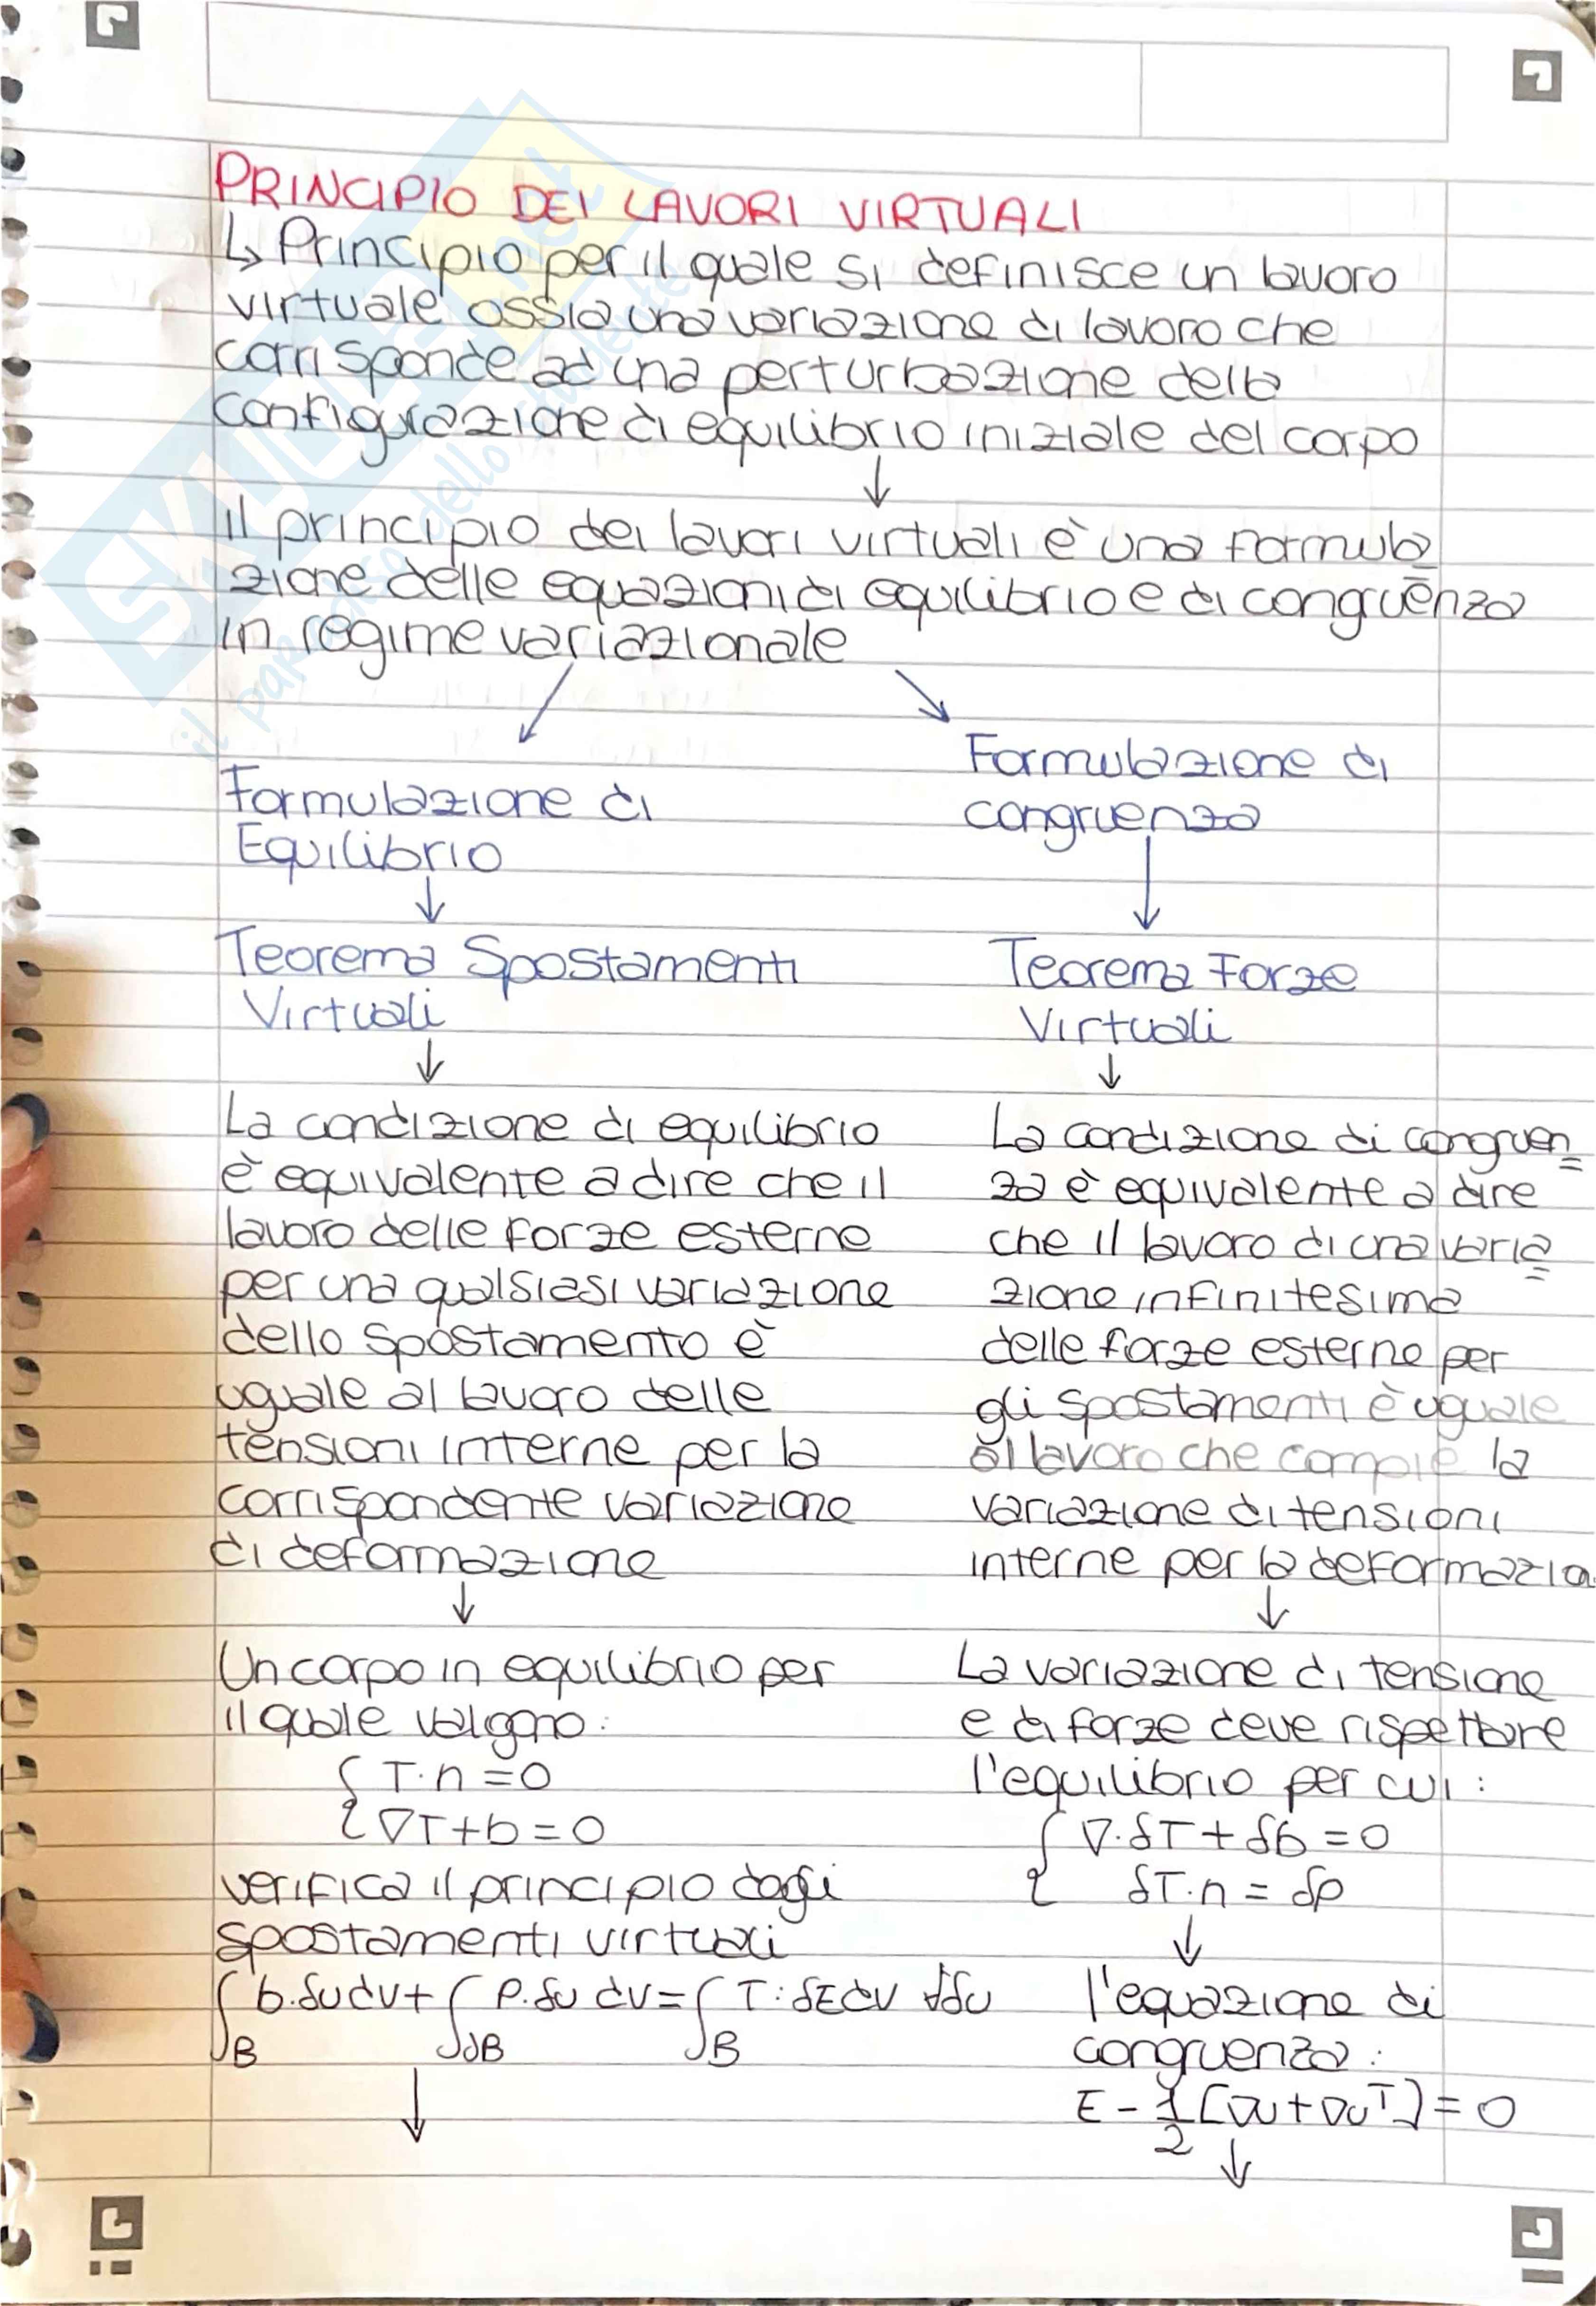 PRINCIPIO DEI LAVORI VIRTUALI
↳ Principio per il quale si definisce un lavoro
virtuale ossia una variazione di lavoro che
corrisponde ad una perturbazione della
configurazione di equilibrio iniziale del corpo
↓
Il principio dei lavori virtuali è una formula
zione delle equazioni di equilibrio e di congruenza
in regime variazionale
Formulazione di
Equilibrio
↓
Teorema Spostamenti
Virtuali
↓
La condizione di equilibrio
è equivalente a dire che il
lavoro delle forze esterne
per una qualsiasi variazione
dello spostamento è
uguale al lavoro delle
tensioni interne per la
corrispondente variazione
di deformazione
↓
Un corpo in equilibrio per
il quale valgono:
{ T·n = 0
∇T + b = 0
verifica il principio degli
spostamenti virtuali
∫_B b·δu dV + ∫_∂B p·δu dV = ∫_B T:δE dV ∀δu
↓
Formulazione di
congruenza
↓
Teorema Forze
Virtuali
↓
La condizione di congruen=
za è equivalente a dire
che il lavoro di una varia=
zione infinitesima
delle forze esterne per
gli spostamenti è uguale
al lavoro che compie la
variazione di tensioni
interne per la deformazio
↓
La variazione di tensione
e di forze deve rispettare
l'equilibrio per cui:
{ ∇·δT + δb = 0
δT·n = δp
↓
l'equazione di
congruenza:
E - 1/2 [∇u + ∇u^T] = 0
↓
SKUOLA.net
il paradiso dello studente